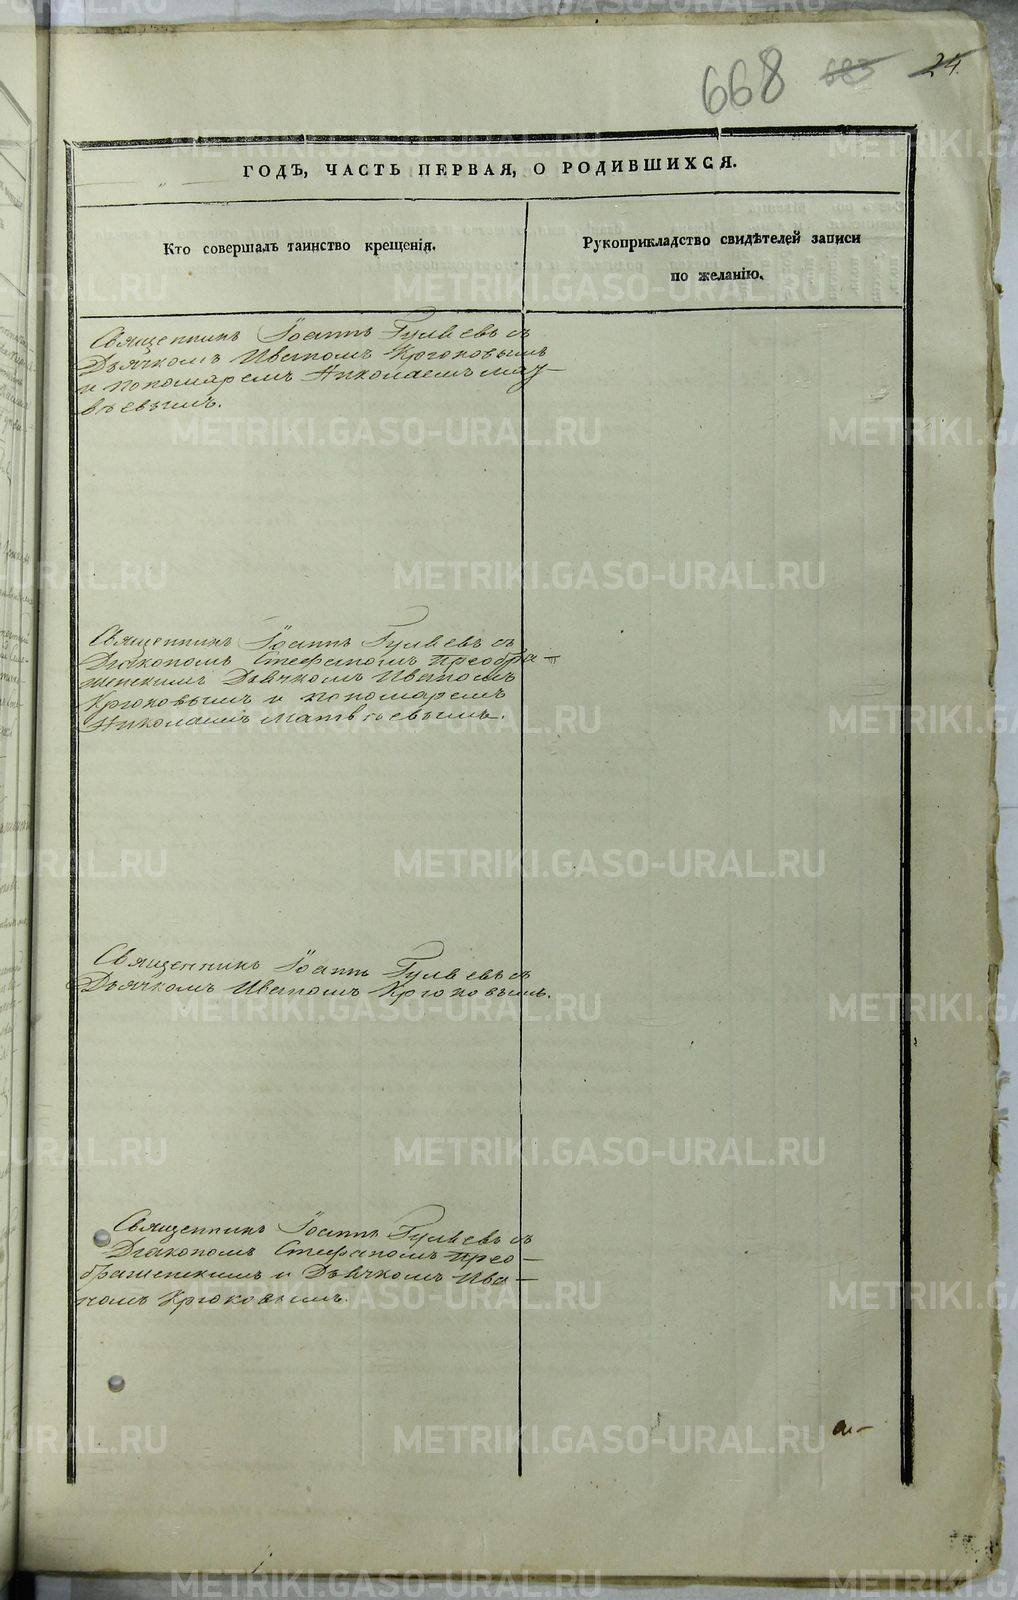 668 683 24.
ГОДЪ, ЧАСТЬ ПЕРВАЯ, О РОДИВШИХСЯ.
Кто совершалъ таинство крещенія.
Рукоприкладство свидѣтелей записи
по желанію.
Священникъ Іоаннъ Гуляевъ съ
Дьячкомъ Иваномъ Крюковымъ
и пономаремъ Николаемъ Мат-
вѣевымъ.
Священникъ Іоаннъ Гуляевъ съ
Діакономъ Стефаномъ Преобра-
женскимъ Дьячкомъ Иваномъ
Крюковымъ и пономаремъ
Николаемъ Матвѣевымъ.
Священникъ Іоаннъ Гуляевъ съ
Дьячкомъ Иваномъ Крюковымъ.
Священникъ Іоаннъ Гуляевъ съ
Діакономъ Стефаномъ Прео-
браженскимъ и Дьячкомъ Ива-
номъ Крюковымъ.
METRIKI.GASO-URAL.RU